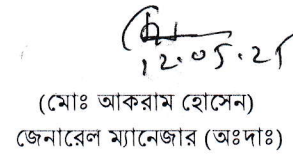 12.05.25
(মোঃ আকরাম হোসেন)
জেনারেল ম্যানেজার (অঃদাঃ)